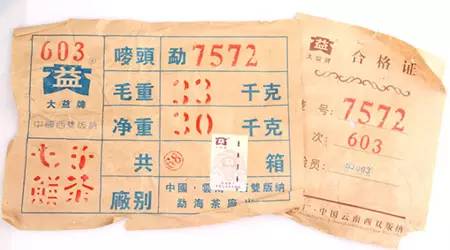 603
益
大益牌
中國西雙版納
七子
餅茶
嘜頭 勐7572
毛重 33 千克
净重 30 千克
共 箱
廠别 中國·雲南西雙版纳
勐海茶廠
益
大益牌
合格证
号: 7572
次: 603
检员:
厂·中国云南西双版纳